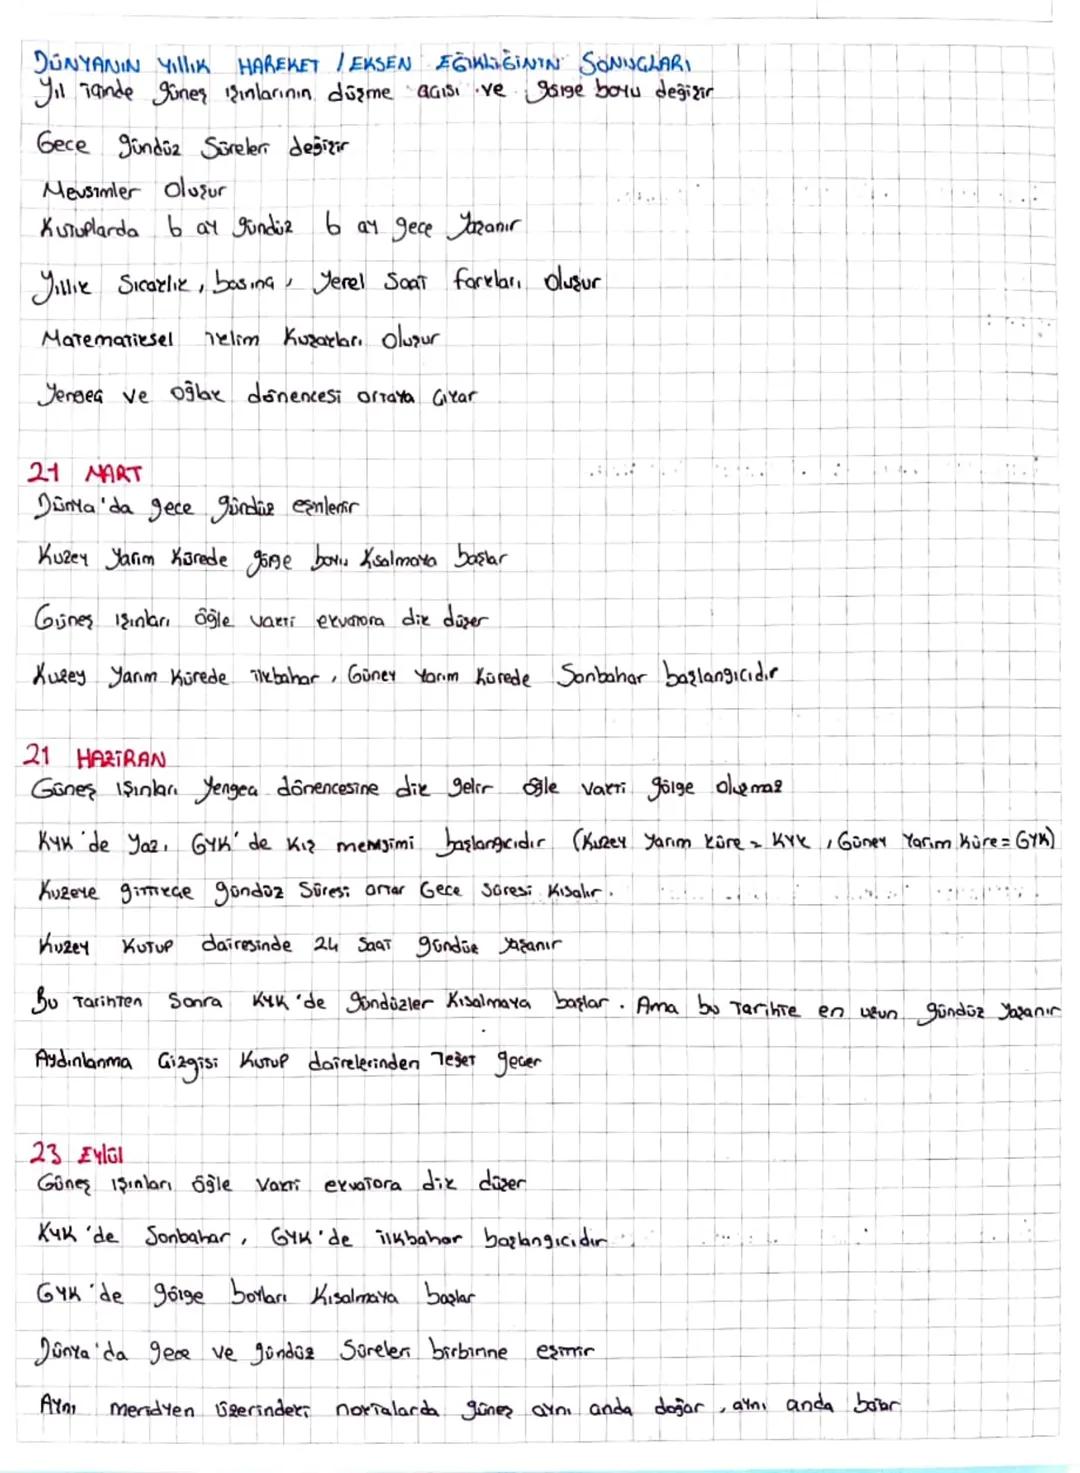 DÜNYANIN YILLIK HAREKET / EKSEN EĞİKLİĞİNİN SONUÇLARI
Yıl içinde güneş ışınlarının düşme açısı ve gölge boyu değişir
Gece gündüz Süreleri değişir
Mevsimler Oluşur
Kutuplarda 6 ay gündüz 6 ay gece Yaşanır
Yıllık Sıcaklık, basınç, Yerel Saat farkları oluşur
Matematiksel iklim Kuşakları Oluşur
Yengeç ve Oğlak dönencesi ortaya Çıkar
21 MART
Dünya'da gece gündüz eşitlenir
Kuzey Yarım Kürede gölge boyu Kısalmaya başlar
Güneş ışınları öğle vakti ekvatora dik düşer
Kuzey Yarım Kürede ilkbahar, Güney Yarım Kürede Sonbahar başlangıcıdır
21 HAZİRAN
Güneş Işınları Yengeç dönencesine dik gelir öğle vakti gölge oluşmaz
KYK'de Yaz, GYK'de Kış mevsimi başlangıcıdır (Kuzey Yarım Küre = KYK, Güney Yarım Küre = GYK)
Kuzeye gittikçe gündüz Süresi artar Gece Süresi Kısalır.
Kuzey Kutup dairesinde 24 Saat gündüz yaşanır
Bu Tarihten Sonra KYK'de gündüzler Kısalmaya başlar. Ama bu Tarihte en uzun gündüz Yaşanır
Aydınlanma Çizgisi Kutup dairelerinden Teğet geçer
23 Eylül
Güneş ışınları öğle Vakti ekvatora dik düşer
KYK'de Sonbahar, GYK'de ilkbahar başlangıcıdır
GYK'de gölge boyları Kısalmaya başlar
Dünya'da gece ve gündüz Süreleri birbirine eşittir
Aynı meridyen üzerindeki noktalarda güneş aynı anda doğar, aynı anda batar